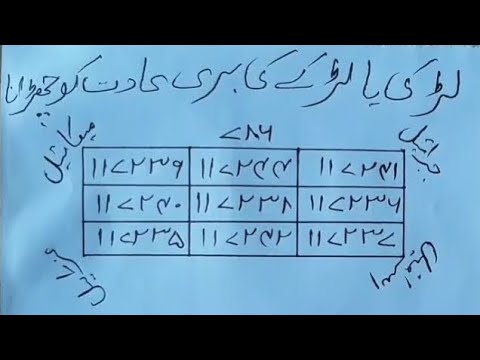 لڑکی یا لڑکے کی بری عادت کو چھڑانا
جبرائیل ۷۸۶ میکائیل
۱۱۷۲۴۱ ۱۱۷۲۳۹
۱۱۷۲۳۶ ۱۱۷۲۳۸ ۱۱۷۲۴۰
۱۱۷۲۳۷ ۱۱۷۲۴۲ ۱۱۷۲۳۵
اسرافیل عزرائیل